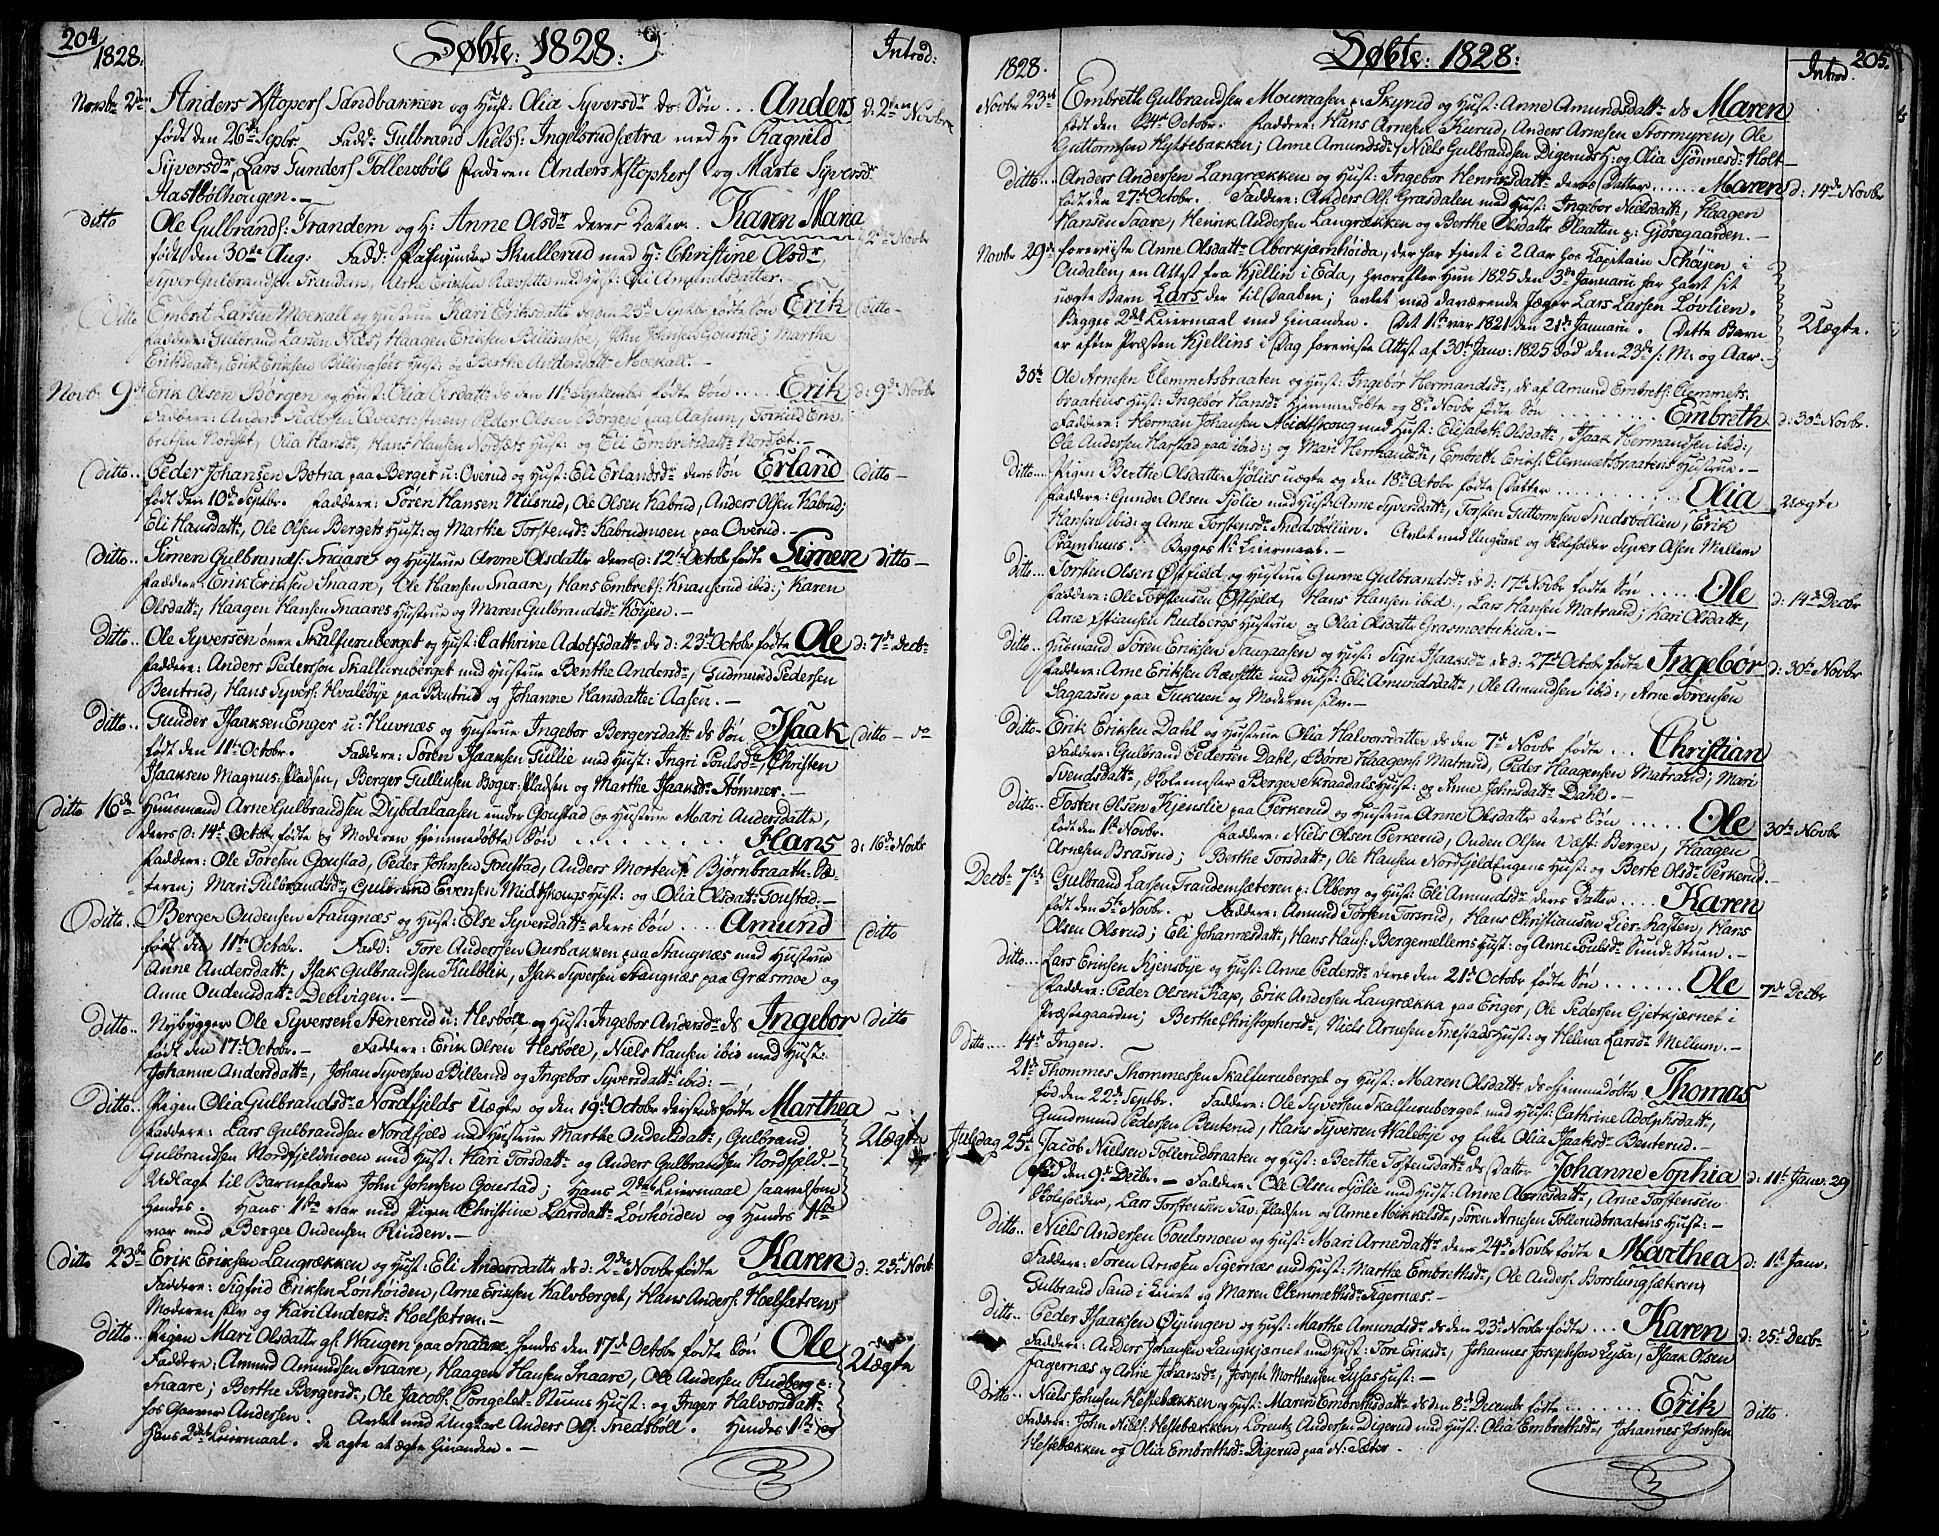 204
1828.
Døbte: 1828.
Introd:
Novbr 2den Anders Xstophers Sandbakken og Hust: Olia Syversdr ds Søn ... Anders d: 2den Novbr
født den 26de Septbr. Fadd: Gulbrand Niels: Ingelsrudsætra med H: Ragnild
Syversdr, Lars Gunders Tollersbøl, Faderen Anders Xstophers og Marte Syversdr
Hastbølhougen. —
ditto Ole Gulbrands: Trandem og H: Anne Olsdr deres Datter. Karen Maria d: 2den Novbr
født den 30te Aug: Fadd: Skullerud med H: Christine Olsdr,
Syver Gulbrandsen Trandem, Arne Eriksen Ræsætte med Hust: Eli Amundsdatter.
Ditto Embret Larsen Moekall og Hustrue Kari Eriksdatte den 25de Septbr fødte Søn Erik Ditto —
Faddere: Gulbrand Larsen Næs, Haagen Eriksen Billingsøe, John Johnsen Goustad; Marthe
Eriksdatt, Erik Eriksen Billingsøes Hust: og Berthe Andersdatt Moekall. —
Novb: 9de Erik Olsen Børgen og Hust: Olia Olsdatt ds den 11te September fødte Søn .... Erik d: 9de Novbr
Faddere: Anders Peder Olsen Børgen paa Aasum, Torkild Em-
bretsen Nordset, Olia Hansdr, Hans Hansen Nordsæts Hust: og Eli Embretsdatt Nordsæt. —
Ditto.. Peder Johansen Botna paa Berget u: Overud og Hust: Eli Erlandsdr ders Søn Erland Ditto —
født den 10de Septbr. Faddere: Søren Hansen Nilsrud, Ole Olsen Kabrud, Anders Olsen Kabrud;
Eli Hansdatt, Ole Olsen Bergets Hust: og Marthe Torstensdr Kabrudmoen paa Overud. —
Ditto.. Simen Gulbrands: Snaare og Hustrue Anne Olsdatte deres d: 12te Octobr fødte Simen ditto —
Faddere: Erik Eriksen Snaare, Ole Hansen Snaare, Hans Embrets: Knapserud ibid:; Karen
Olsdatt, Haagen Hansen Snaares Hustrue og Maren Gulbrandsdr Køijen. —
Ditto.. Ole Syversen øvre Skalfuruberget og Hust: Cathrine Adolfsdatt ds d: 23de Octobr fødte Ole d: 7de Decbr
Faddere: Anders Pedersen Skalfuruberget med Hustrue Berthe Andersdr, Gudmund Pedersen
Bentrud, Hans Syvers: Hvalebye paa Bentrud og Johanne Hansdatter Aasen. —
Ditto.. Gunder Isaaksen Enger u: Huvnæs og Hustrue Ingebor Bergersdatt ds Søn Isaak Ditto —
født den 11te Octobr. Faddere: Søren Isaaksen Tullie med Hust: Ingri Poulsdr, Christen
Isaaksen Magnus: Pladsen, Berger Gullinsen Boger: Pladsen og Marthe Isaaksdr Stømner. —
Ditto 16de Huusmand Arne Gulbrandsen Dybdalaasen under Goustad og Hustrue Mari Andersdatte,
deres d: 14de Octobr fødte og Moderen hjemmedøbte Søn ........ Hans d: 16de Novbr
Faddere: Ole Toresen Goustad, Peder Johnsen Goustad, Anders Mortens: Bjørnbraath-Sæ-
teren; Mari Gulbrandsdr, Gulbrand Evensen Midtskougs Hust: og Olia Olsdatt Goustad. —
Ditto.. Berger Oudensen Stangnæs og Hust: Else Syversdatt deres Søn .... Amund Ditto
født den 11te Octobr. Fadd: Tore Andersen Ourbakken paa Stangnæs med Hustrue
Anne Andersdatt, Isak Gulbrandsen Kulblik, Isak Syversen Stangnæs paa Græsmoe og
Anne Oudensdatt Dellvigen. —
Ditto.. Nybygger Ole Syversen Stenerud u: Hesbøll og Hust: Ingebor Andersdr ds Ingebor Ditto
født den 17de Octobr. — Faddere: Erik Olsen Hesbøle, Niels Hansen ibid med Hust:
Johanne Andersdatt, Johan Syversen Billerud og Ingebor Syversdatt ibid: —
Ditto.. Pigen Olia Gulbrandsdr Nordfjelds Uægte og den 19de Octobr dersteds fødte Marthea
Faddere: Lars Gulbrandsen Nordfjeld med Hustrue Marthe Oudensdatt, Gulbrand Uægte
Gulbrandsen Nordfjeldmoen med Hust: Kari Torsdatt og Anders Gulbrandsen Nordfjeld. —
Udlagt til Barnefader John Johnsen Goustad; Hans 2det Leiermaal saavelsom
Hendes. Hans 1ste var med Pigen Christine Larsdatt Løvhøiden og Hendes 1ste
var med Berger Oudensen Rinden. —
Ditto 23de Erik Eriksen Langrækken og Hust: Eli Andersdatte ds d: 2den Novbr fødte Karen d: 23de Novb:
Faddere: Sigfrid Eriksen Lonhøiden, Arne Eriksen Kalvberget, Hans Anders: Hoelsætren,
Moderen selv og Kari Andersdr Hoelsætren. —
Ditto.. Pigen Mari Olsdatte af Waugen paa Snaare, hendes den 17de Octobr fødte Søn Ole
Faddere: Amund Amundsen Snaare, Haagen Hansen Snaare, Ole Andersen Rudberg p: Uægte
Snaare; Berthe Bergersdr, Ole Jacobs: Pongelds-Stuens Hust: og Inger Halvorsdatt
hos Andersen. Avlet med Ungkarl Anders Ols: Snedsbøll. Hendes 1ste og
Hans 2det Leiermaal. De agte at ægte hinanden. —
205.
1828.
Døbte: 1828.
Introd.
Novbr 23de Embreth Gulbrandsen Mouraasen p: Skyrud og Hust: Anne Amundsdatt ds Maren
født den 24de Octobr. Faddere: Hans Arnesen Kurud, Anders Arnesen Stormyren, Ole
Guttormsen Kyltebakken; Anne Amundsdr, Niels Gulbrandsen Digeruds H: og Olia Tjønnesdr Holt —
Ditto.... Anders Andersen Langrækken og Hust: Ingebor Henriksdatt deres Datter ...... Maren d: 14de Novbr
født den 27de Octobr. Faddere: Anders Ols: Grasdalen med Hust: Ingebor Nielsdatt, Haagen
Hansen Saare, Henrik Andersen Langrækken og Berthe Olsdatte Plaatten p: Gjøsegaarden. —
Novbr 29de foreviiste Anne Olsdatt Abborkjærnhøida, der har tjent i 2 Aar hos Kapitain Schøyen i
Oudalen, en Attest fra Kjellin i Eda, hvorefter Hun 1825 den 3de Januarii har havt sit
uægte Barn Lars der til Daaben; avlet med daværende Jæger Lars Larsen Løvlien.
Begges 2det Leiermaal med Hinanden. Det 1ste var 1821 den 21de Januarii. (Dette Barn Uægte.
er efter Præsten Kjellins i Dag foreviste Attest af 30te Janv: 1825 død den 23de s: M: og Aar. —
30te Ole Arnesen Clemmetsbraaten og Hust: Ingebør Hermandsdr, ds af Amund Embrets: Clemmets-
braatens Hust: Ingebor Hansdr hjemmedøbte og 8de Novbr fødte Søn ........ Embreth d: 30te Novbr.
Faddere: Herman Johansen Midtskoug med Hust: Elisabeth Olsdatt, Isaak Hermandsen ibid:,
Ole Andersen Harstad paa ibid:; og Mari Hermandsdr, Embreth Eriks: Clemmetsbraatens Hustrue. —
Ditto.... Pigen Berthe Olsdatter Sjølies uægte og den 18de Octobr fødte Datter .......... Olia Uægte
Faddere: Gunder Olsen Sjølie med Hust: Anne Syversdatt, Torsten Guttormsen Snedsbøllien, Erik
Hansen ibid: og Anne Torstensdr Snedsbøllien. Avlet med Ungkarl og Skoleholder Syver Olsen Mellem
Framhuus. Begges 1ste Leiermaal. —
Ditto... Torsten Olsen Østfield og Hustrue Gunne Gulbrandsdr ds d: 17de Novbr fødte Søn ..... Ole d: 14de Decbr
Faddere: Ole Torstensen Østfjeld, Hans Hansen ibid:, Lars Hansen Matrand; Kari Olsdatt,
Arne Xstiansen Rudbergs Hustrue og Olia Olsdatte Grasmoetukua. —
Ditto.. Huusmand Søren Eriksen Saugaasen og Hust: Signi Isaaksdr ds d: 27de Octobr fødte Ingebør d: 30te Novbr
Faddere: Arne Eriksen Rævsætte med Hust: Eli Amundsdatt, Ole Amundsen ibid:, Arne Sørensen
Sagaasen paa Tukuen og Moderen selv. —
Ditto- Erik Eriksen Dahl og Hustrue Olia Halvorsdatter ds den 7de Novbr fødte ... Christian
Faddere: Gulbrand Pedersen Dahl, Børre Haagens: Matrand, Peder Haagensen Matrand; Mari
Svendsdatt, Skolemester Berger Skraadals Hust: og Anne Johnsdatt Dahl. —
Ditto.. Tosten Olsen Kjenslie paa Perkerud og Hustrue Anne Olsdatte ders Søn ...... Ole 30te Novbr
født den 1ste Novbr. Faddere: Niels Olsen Perkerud, Ouden Olsen Væst-Berger, Haagen
Arnesen Brasrud; Berthe Torsdatt, Ole Hansen Nordfjeldengens Hust: og Berte Olsdr Perkerud. —
Decbr 7de Gulbrand Larsen Trandemsæteren p: Olberg og Hust: Eli Amundsdr ders Datter ..... Karen
født den 5te Novbr. Faddere: Amund Torsten Torsrud, Hans Christiansen Lier-Hasten, Hans
Olsen Olsrud; Eli Johannesdatt, Hans Hans: Bergemellems Hust: og Anne Poulsdr Sund-Stuen. —
Ditto... Lars Eriksen Kjensbye og Hust: Anne Pedersdr deres den 21de Octobr fødte Søn ....... Ole 7de Decbr
Faddere: Peder Olsen Kap, Erik Andersen Langrækka paa Enger, Ole Pedersen Gjetkjærnet i
Præstegaarden; Berthe Christophersdr, Niels Arnesen Snestads Hust: og Helena Larsdr Mellum. —
Ditto.... 14de Ingen.
21de Thommes Thommessen Skalfuruberget og Hust: Maren Olsdatt ds hiemmedøbte Thomas
fød den 22de Septbr. Faddere: Ole Syversen Skalfuruberget med Hust: Cathrine Adolphsdatt,
Gundmund Pedersen Benterud, Hans Syversen Walebye og Enke Olia Isaaksdr Benterud. —
Juledag 25de Jacob Nielsen Tollerudbraaten og Hust: Berthe Tostensdatt ds Datter Johanne Sophia d: 11te Janv: 29
Fød den 9de Decbr. — Faddere: Ole Olsen Sjølie med Hust: Anne Arnesdatt, Arne Torstensen
Skoleholder, Lars Torstensen Tav: Pladsen og Anne Mikkelsdr, Søren Arnesen Tollerudbraatens Hust: —
Ditto.. Niels Andersen Poulsmoen og Hust: Mari Arnesdatt deres 24de Novbr fødte Marthea d: 1ste Janv.
Faddere: Søren Arnesen Sigernæs med Hust: Marthe Embrethsdr, Ole Anders: Borslungsæteren,
Gulbrand Sand i Leiret og Maren Clemmethsdr Sigernæs. —
Ditto.. Peder Isaaksen Øiungen og Hust: Marthe Amundsdr ds den 23de Novbr fødte ... Karen d: 25de Decbr
Faddere: Anders Johansen Langkjærnet med Hust: Tore Eriksdr, Johannes Josephsen Lysa, Isaak Olsen
Fagernæs og Anne Johansdr, Joseph Morthensen Lysas Hust: —
Ditto.. Niels Johnsen Hestebækken og Hust: Maren Embrethsdatt ds den 8de Decembr fødte ...... Erik Ditto.
Faddere: John Niels: Hestebækken, Lorentz Andersen Digerud med Hust: Olia Embrethsdr, Johannes Johnsen
Hestebækken og Olia Embrethsdr Digerud paa N: Sæter.